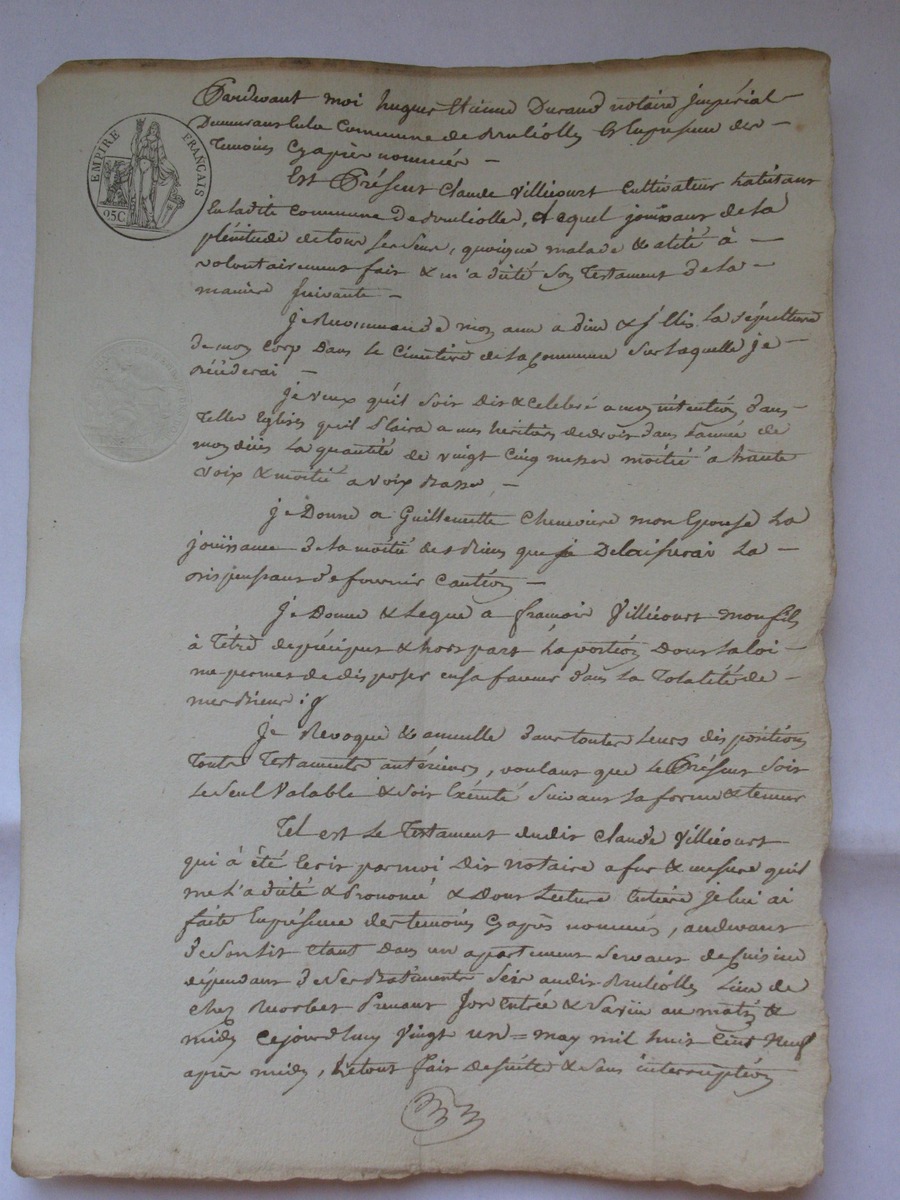 EMPIRE FRANÇAIS
25C
Pardevant moi hugues Etienne Durand notaire jmpérial
Demeurant En la Commune de Brulliolles En la presence des
Temoins Cy après nommés
Est Présent Claude Villecourt Cultivateur habitant
En ladite Commune De Brulliolles, Lequel jouissant de la
plénitude de tous ses sens, quoique malade & alité à
volontairement fait & m'a dicté Son Testament de la
maniere Suivante
je Recommande mon ame a dieu & la sépulture
de mon Corp Dans le Cimetiere de la Commune Sur laquelle je
décéderai
je veux qu'il soit Dit & Celebré a mon intention dans
Telles Eglises qu'il plaira a mes heritiers de droit dans l'année de
mon décès La quantité de vingt Cinq messes moitié a haute
voix & moitié a voix Basse,
je Donne a Guillemette mon Epouse La
jouissance de la moitié des Biens que je Delaisserai La
dispensant de fournir Caution
Je Donne & Legue a francois Villecourt mon fils
à Titre de préciput & hors part La portion Dont la loi
me permet de disposer en sa faveur dans la Totalité de
mes Biens
je Revoque & annulle dans toutes Leurs dispositions
Touts Testaments antérieurs, voulant que le Présent Soit
Le Seul Valable & Soit Exécuté Suivant Sa forme & teneur
Tel est Le Testament dudit Claude Villecourt
qui à été Ecrit par moi Dit notaire a fur & mesure qu'il
me L'a dicté & Prononcé & Dont Lecture Entière je lui ai
faite En présence des temoins Cy après nommés, au devant
de Son lit Etant Dans un apartement Servant de Cuisine
dépendant de ses Batiments Scis audit Brulliolles Lieu de
chez Prenant Son Entrée & au matin &
midy Cejourdhuy Vingt un may mil huit Cent Neuf
après midy, Le tout fait de suitte & sans interruption